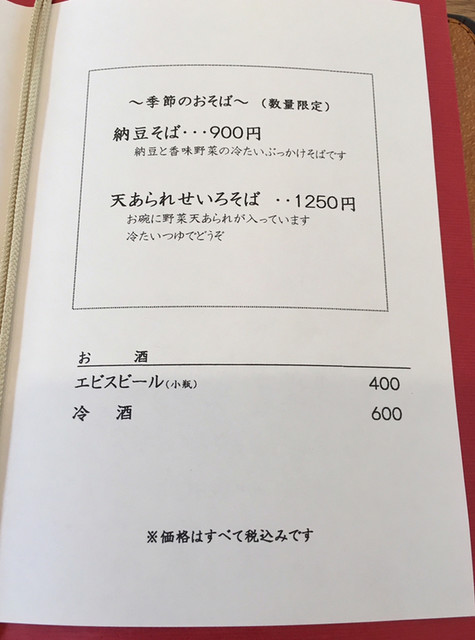 ～季節のおそば～（数量限定）
納豆そば･･･900円
納豆と香味野菜の冷たいぶっかけそばです
天あられせいろそば ･･1250円
お碗に野菜天あられが入っています
冷たいつゆでどうぞ
お 酒
エビスビール(小瓶) 400
冷 酒 600
※価格はすべて税込みです